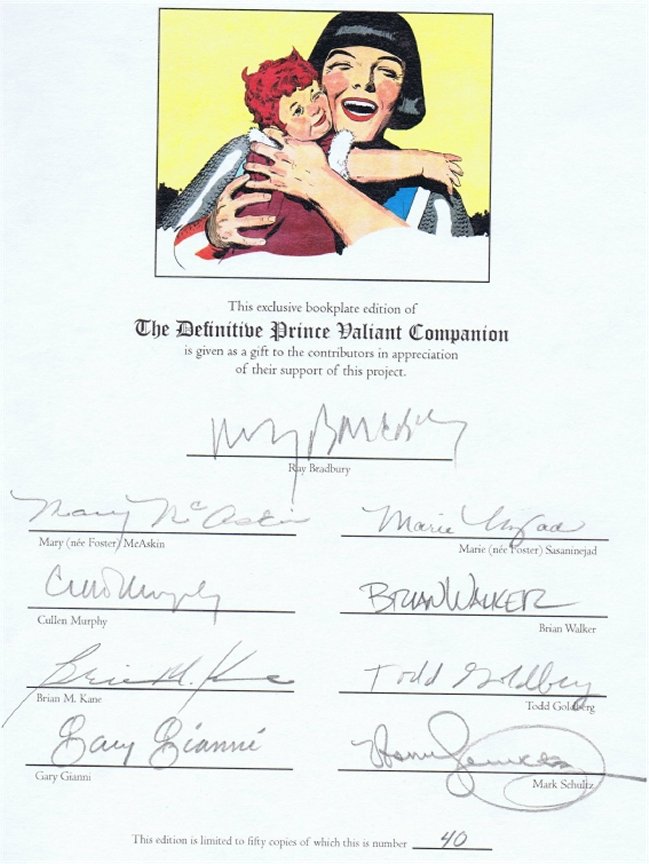 This exclusive bookplate edition of
The Definitive Prince Valiant Companion
is given as a gift to the contributors in appreciation
of their support of this project.
Ray Bradbury
Ray Bradbury
Mary McAskin
Mary (née Foster) McAskin
Marie
Marie (née Foster) Sasaninejad
Cullen Murphy
Cullen Murphy
BRIAN WALKER
Brian Walker
Brian M. Kane
Brian M. Kane
Todd Goldberg
Todd Goldberg
Gary Gianni
Gary Gianni
Mark Schultz
This edition is limited to fifty copies of which this is number 40